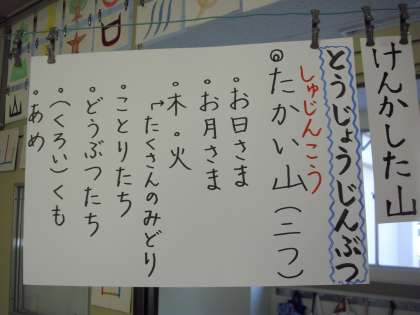 けんかした山
とうじょうじんぶつ
しゅじんこう
◎たかい山(二つ)
・お日さま
・お月さま
・木・火
↪たくさんのみどり
・ことりたち
・どうぶつたち
・(くろい)くも
・あめ
山